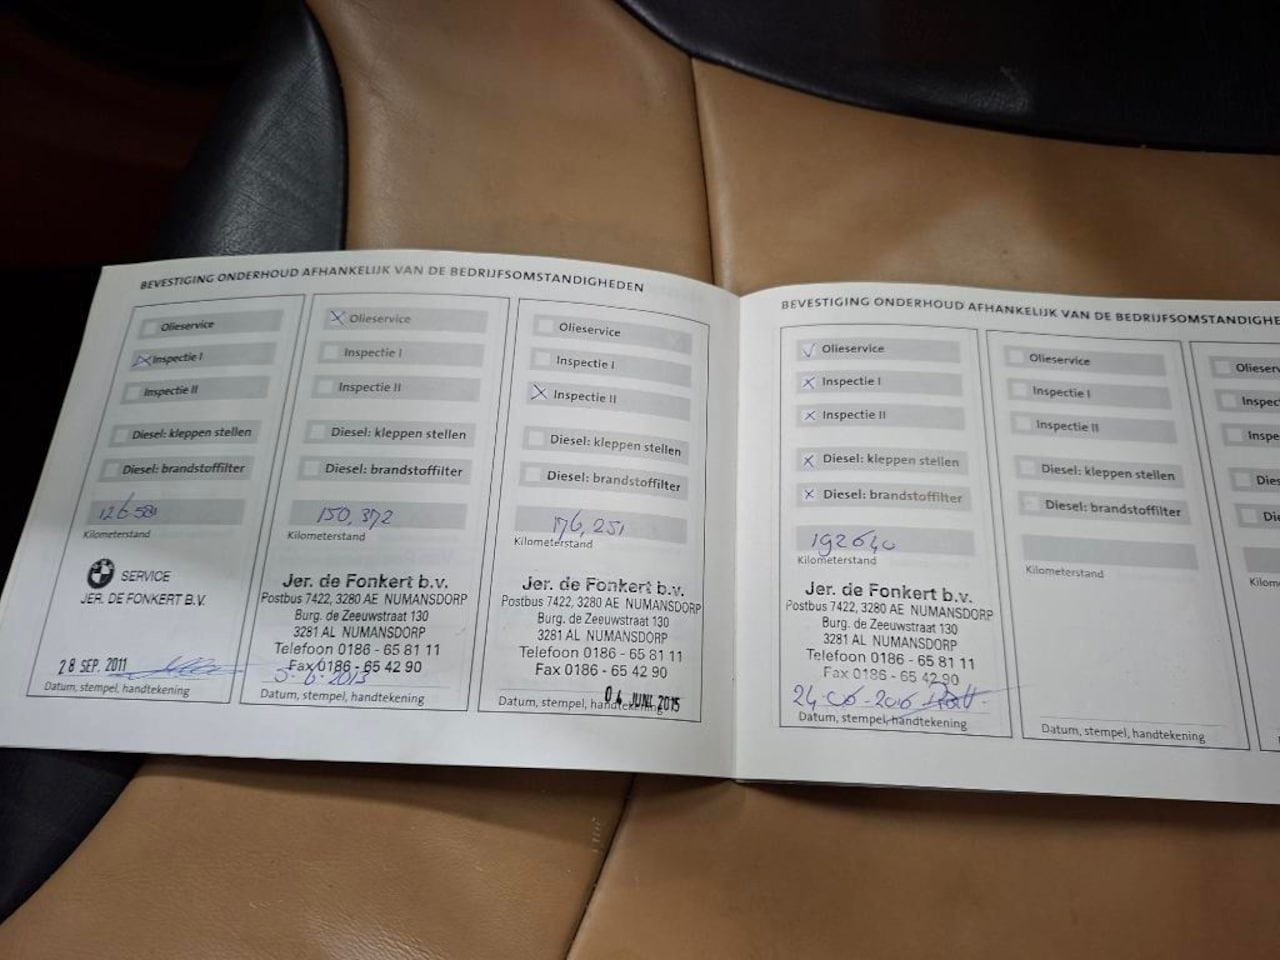 BEVESTIGING ONDERHOUD AFHANKELIJK VAN DE BEDRIJFSOMSTANDIGHEDEN
Olieservice
Inspectie I
Inspectie II
Diesel: kleppen stellen
Diesel: brandstoffilter
126581
Kilometerstand
SERVICE
JER. DE FONKERT B.V.
28 SEP. 2011
Datum, stempel, handtekening
Olieservice
Inspectie I
Inspectie II
Diesel: kleppen stellen
Diesel: brandstoffilter
150,372
Kilometerstand
Jer. de Fonkert b.v.
Postbus 7422, 3280 AE NUMANSDORP
Burg. de Zeeuwstraat 130
3281 AL NUMANSDORP
Telefoon 0186 - 65 81 11
Fax 0186 - 65 42 90
5-6-2013
Datum, stempel, handtekening
Olieservice
Inspectie I
Inspectie II
Diesel: kleppen stellen
Diesel: brandstoffilter
176,251
Kilometerstand
Jer. de Fonkert b.v.
Postbus 7422, 3280 AE NUMANSDORP
Burg. de Zeeuwstraat 130
3281 AL NUMANSDORP
Telefoon 0186 - 65 81 11
Fax 0186 - 65 42 90
04 JUNI 2015
Datum, stempel, handtekening
BEVESTIGING ONDERHOUD AFHANKELIJK VAN DE BEDRIJFSOMSTANDIGHE
Olieservice
Inspectie I
Inspectie II
Diesel: kleppen stellen
Diesel: brandstoffilter
192640
Kilometerstand
Jer. de Fonkert b.v.
Postbus 7422, 3280 AE NUMANSDORP
Burg. de Zeeuwstraat 130
3281 AL NUMANSDORP
Telefoon 0186 - 65 81 11
Fax 0186 - 65 42 90
24-06-2016
Datum, stempel, handtekening
Olieservice
Inspectie I
Inspectie II
Diesel: kleppen stellen
Diesel: brandstoffilter
Kilometerstand
Datum, stempel, handtekening
Olieserv
Inspec
Inspe
Dies
Die
Kilom